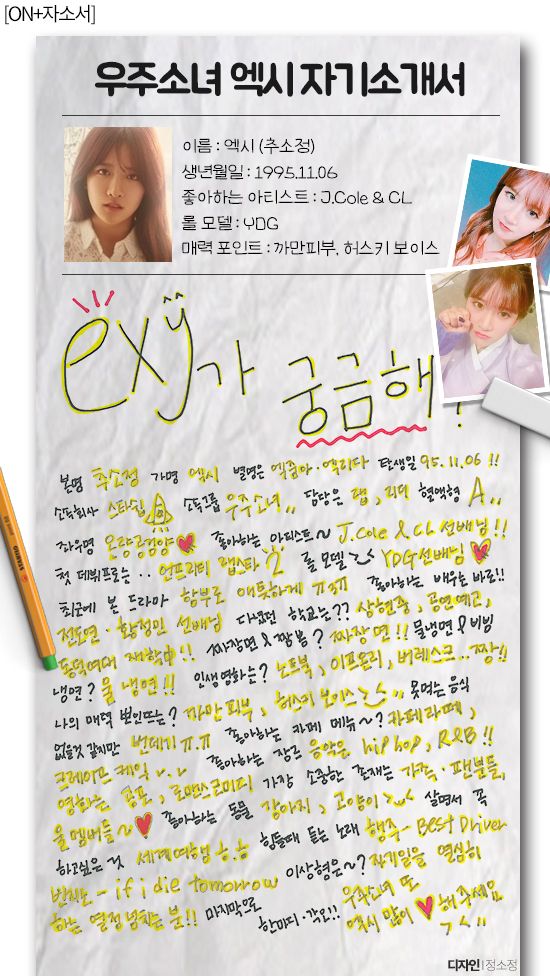 [ON+자소서]
우주소녀 엑시 자기소개서
이름 : 엑시 (추소정)
생년월일 : 1995.11.06
좋아하는 아티스트 : J.Cole & CL
롤 모델 : YDG
매력 포인트 : 까만피부, 허스키 보이스
exy가 궁금해?
본명 추소정 가명 엑시 별명은 엑줌마·엑리다 탄생일 95.11.06 !!
소속회사 스타쉽 소속그룹 우주소녀,, 담당은 랩, 리더 혈액형 A,,
좌우명 온량공검양 좋아하는 아티스트~ J.Cole & CL 선배님!!
첫 데뷔프로는·· 언프리티 랩스타 2 롤 모델 YDG선배님
최근에 본 드라마 함부로 애틋하게 ㅠㅠ 좋아하는 배우는 바로!!
전도연·황정민 선배님 다녔던 학교는?? 상현중, 공연예고,
동덕여대 재학中!! 짜장면 & 짬뽕? 짜장면!! 물냉면 & 비빔
냉면? 물 냉면!! 인생영화는? 노트북, 이프온리, 버레스크..짱!!
나의 매력 뽀인뜨는? 까만피부, 허스키 보이스 ,, 못먹는 음식
없을것 같지만 번데기ㅠㅠ 좋아하는 카페 메뉴~? 카페라떼,
크레이프 케익 v.v 좋아하는 장르 음악은 hiphop, R&B !!
영화는 공포, 로맨스코미디 가장 소중한 존재는 가족·팬분들,
울 멤버들~ 좋아하는 동물 강아지, 고양이 살면서 꼭
하고싶은 것 세계여행 ㅎ.ㅎ 힘들때 듣는 노래 행주- Best Driver
빈지노- if i die tomorrow 이상형은~? 자기일을 열심히
하는 열정 넘치는 분!! 마지막으로 한마디·각인!! 우주소녀 또
엑시 많이 해주세요
디자인 | 정소정